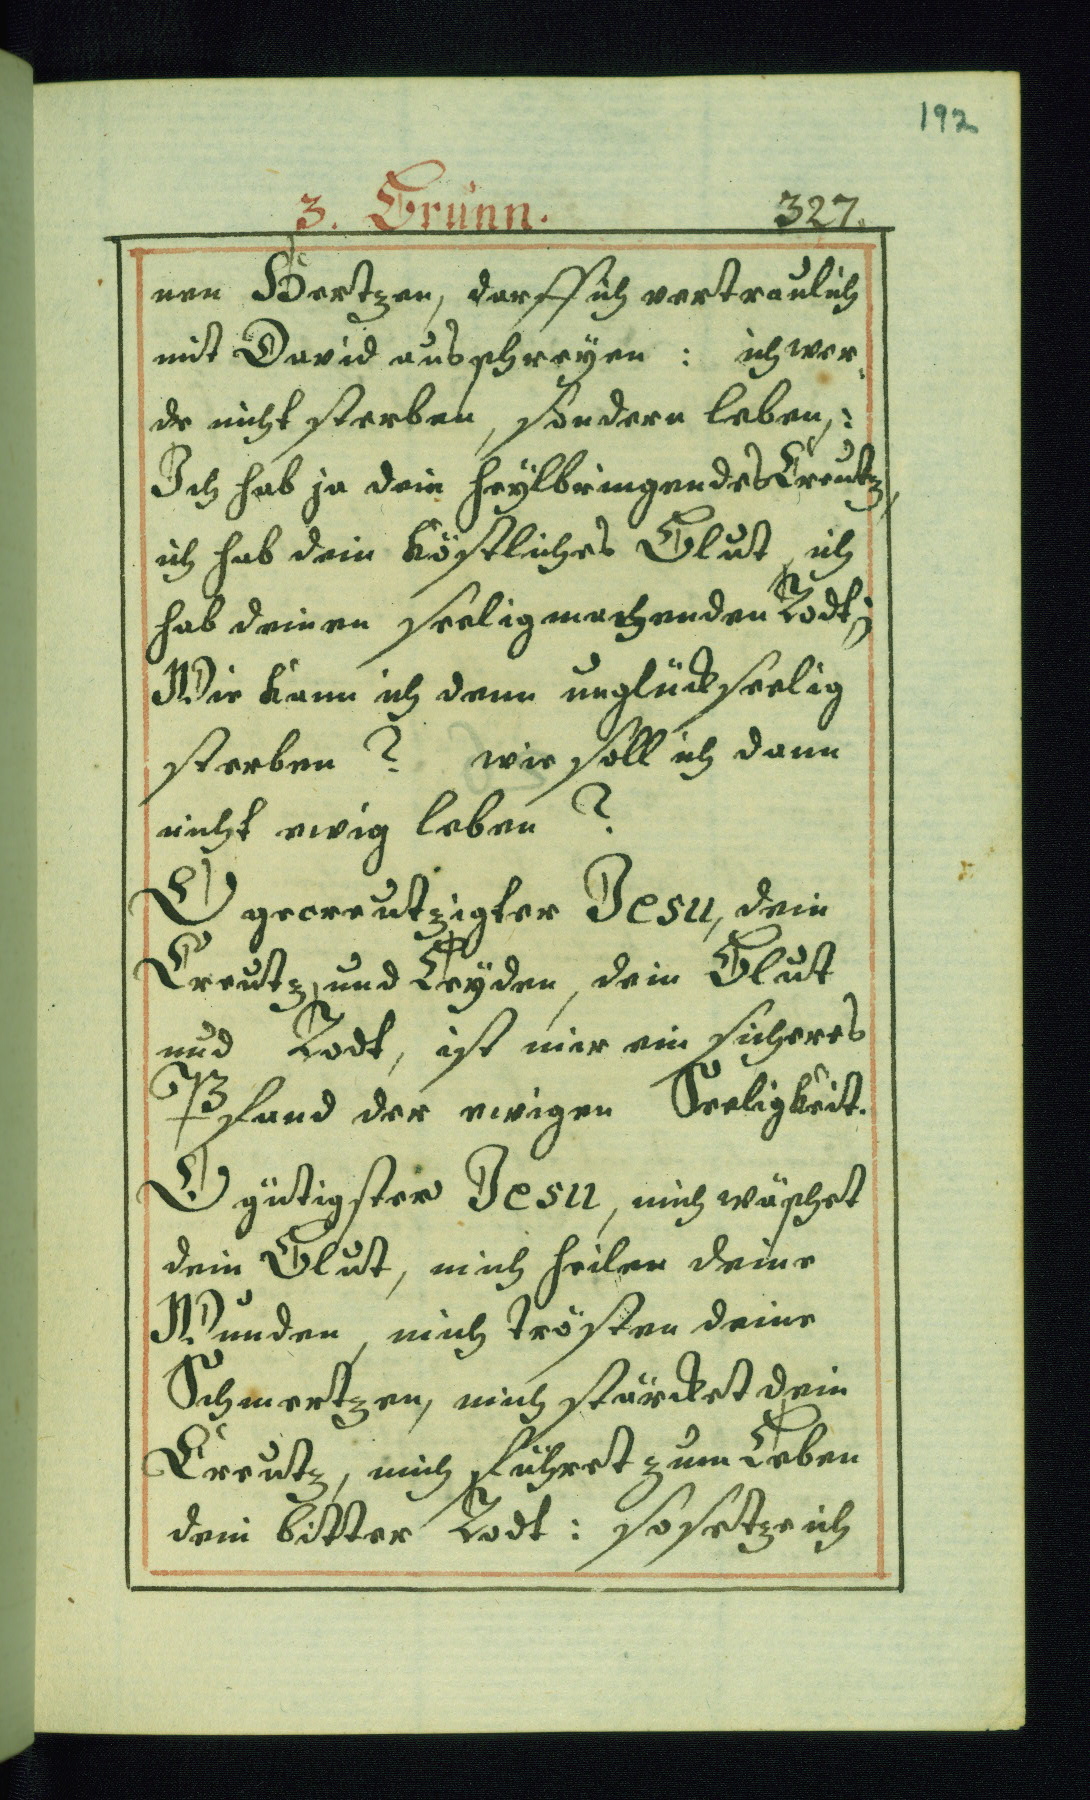 192
3. Brunn. 327.
nen Hertzen, darff ich vertraulich
mit David ausschreyen: ich wer-
de nicht sterben, sondern leben,:
Ich hab ja dein heylbringendes Creutz,
ich hab dein köstliches Blut, ich
hab deinen seeligmachenden Todt;
Wie kann ich denn unglückseelig
sterben? wie soll ich dann
nicht ewig leben?
O gecreutzigter Jesu, dein
Creutz, und Leyden, dein Blut
und Todt, ist mir ein sicheres
Pfand der ewigen Seeligkeit.
O gütigster Jesu, mich wäschet
dein Blut, mich heilen deine
Wunden, mich trösten deine
Schmertzen, mich stärcket dein
Creutz, mich führet zum Leben
dein bitter Todt: so setze ich